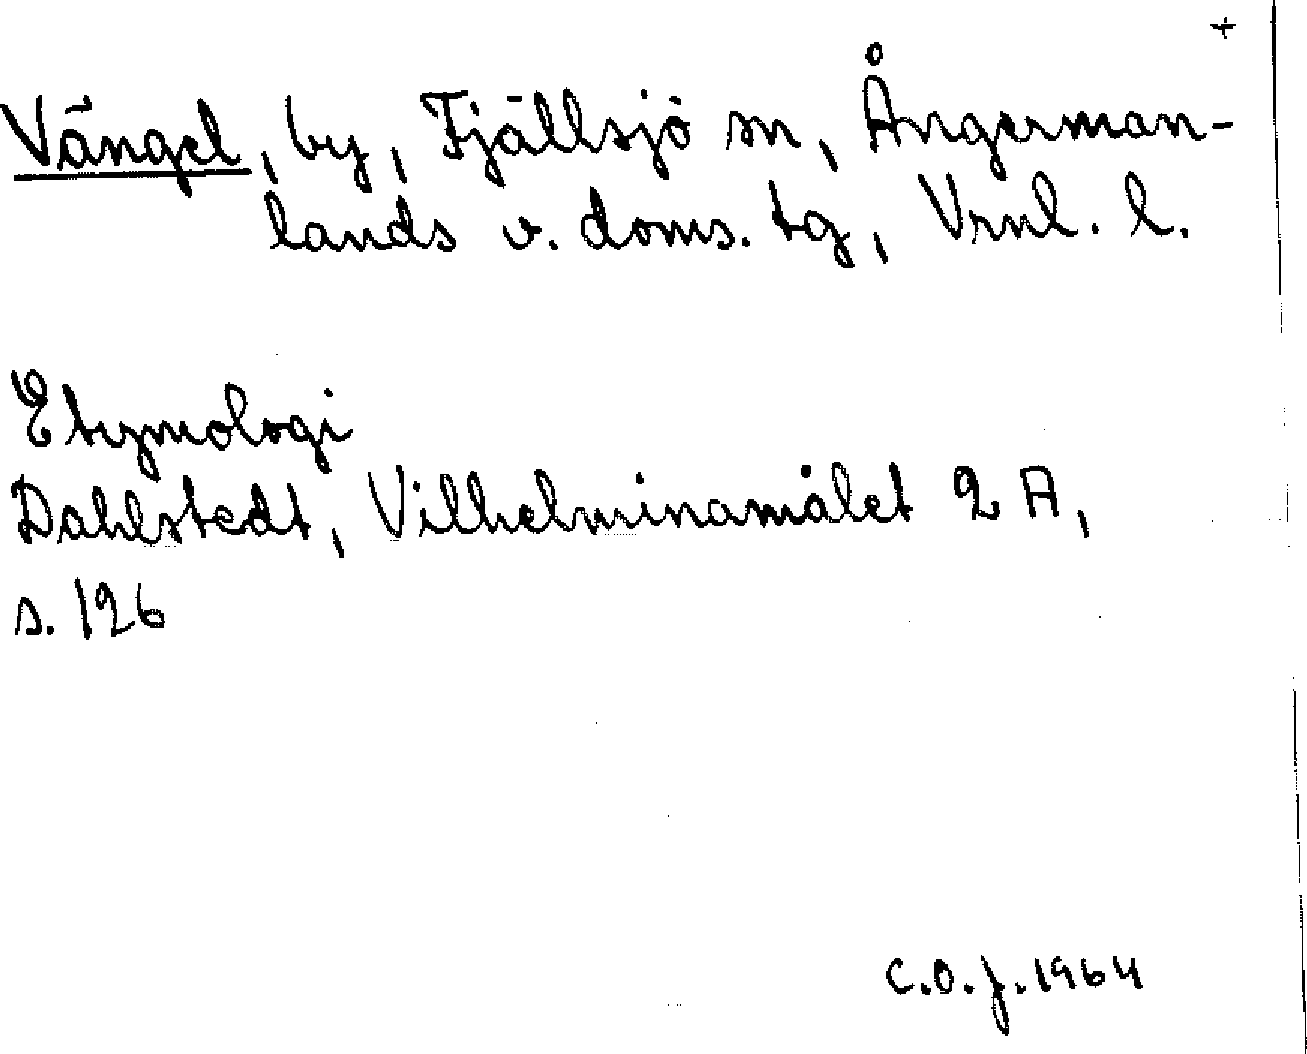 +
Vängel, by, Fjällsjö sn, Ångerman-
lands v. doms. tg, Vrnl. l.
Etymologi
Dahlstedt, Vilhelminamålet 2 A,
s. 126
C.O.J. 1964